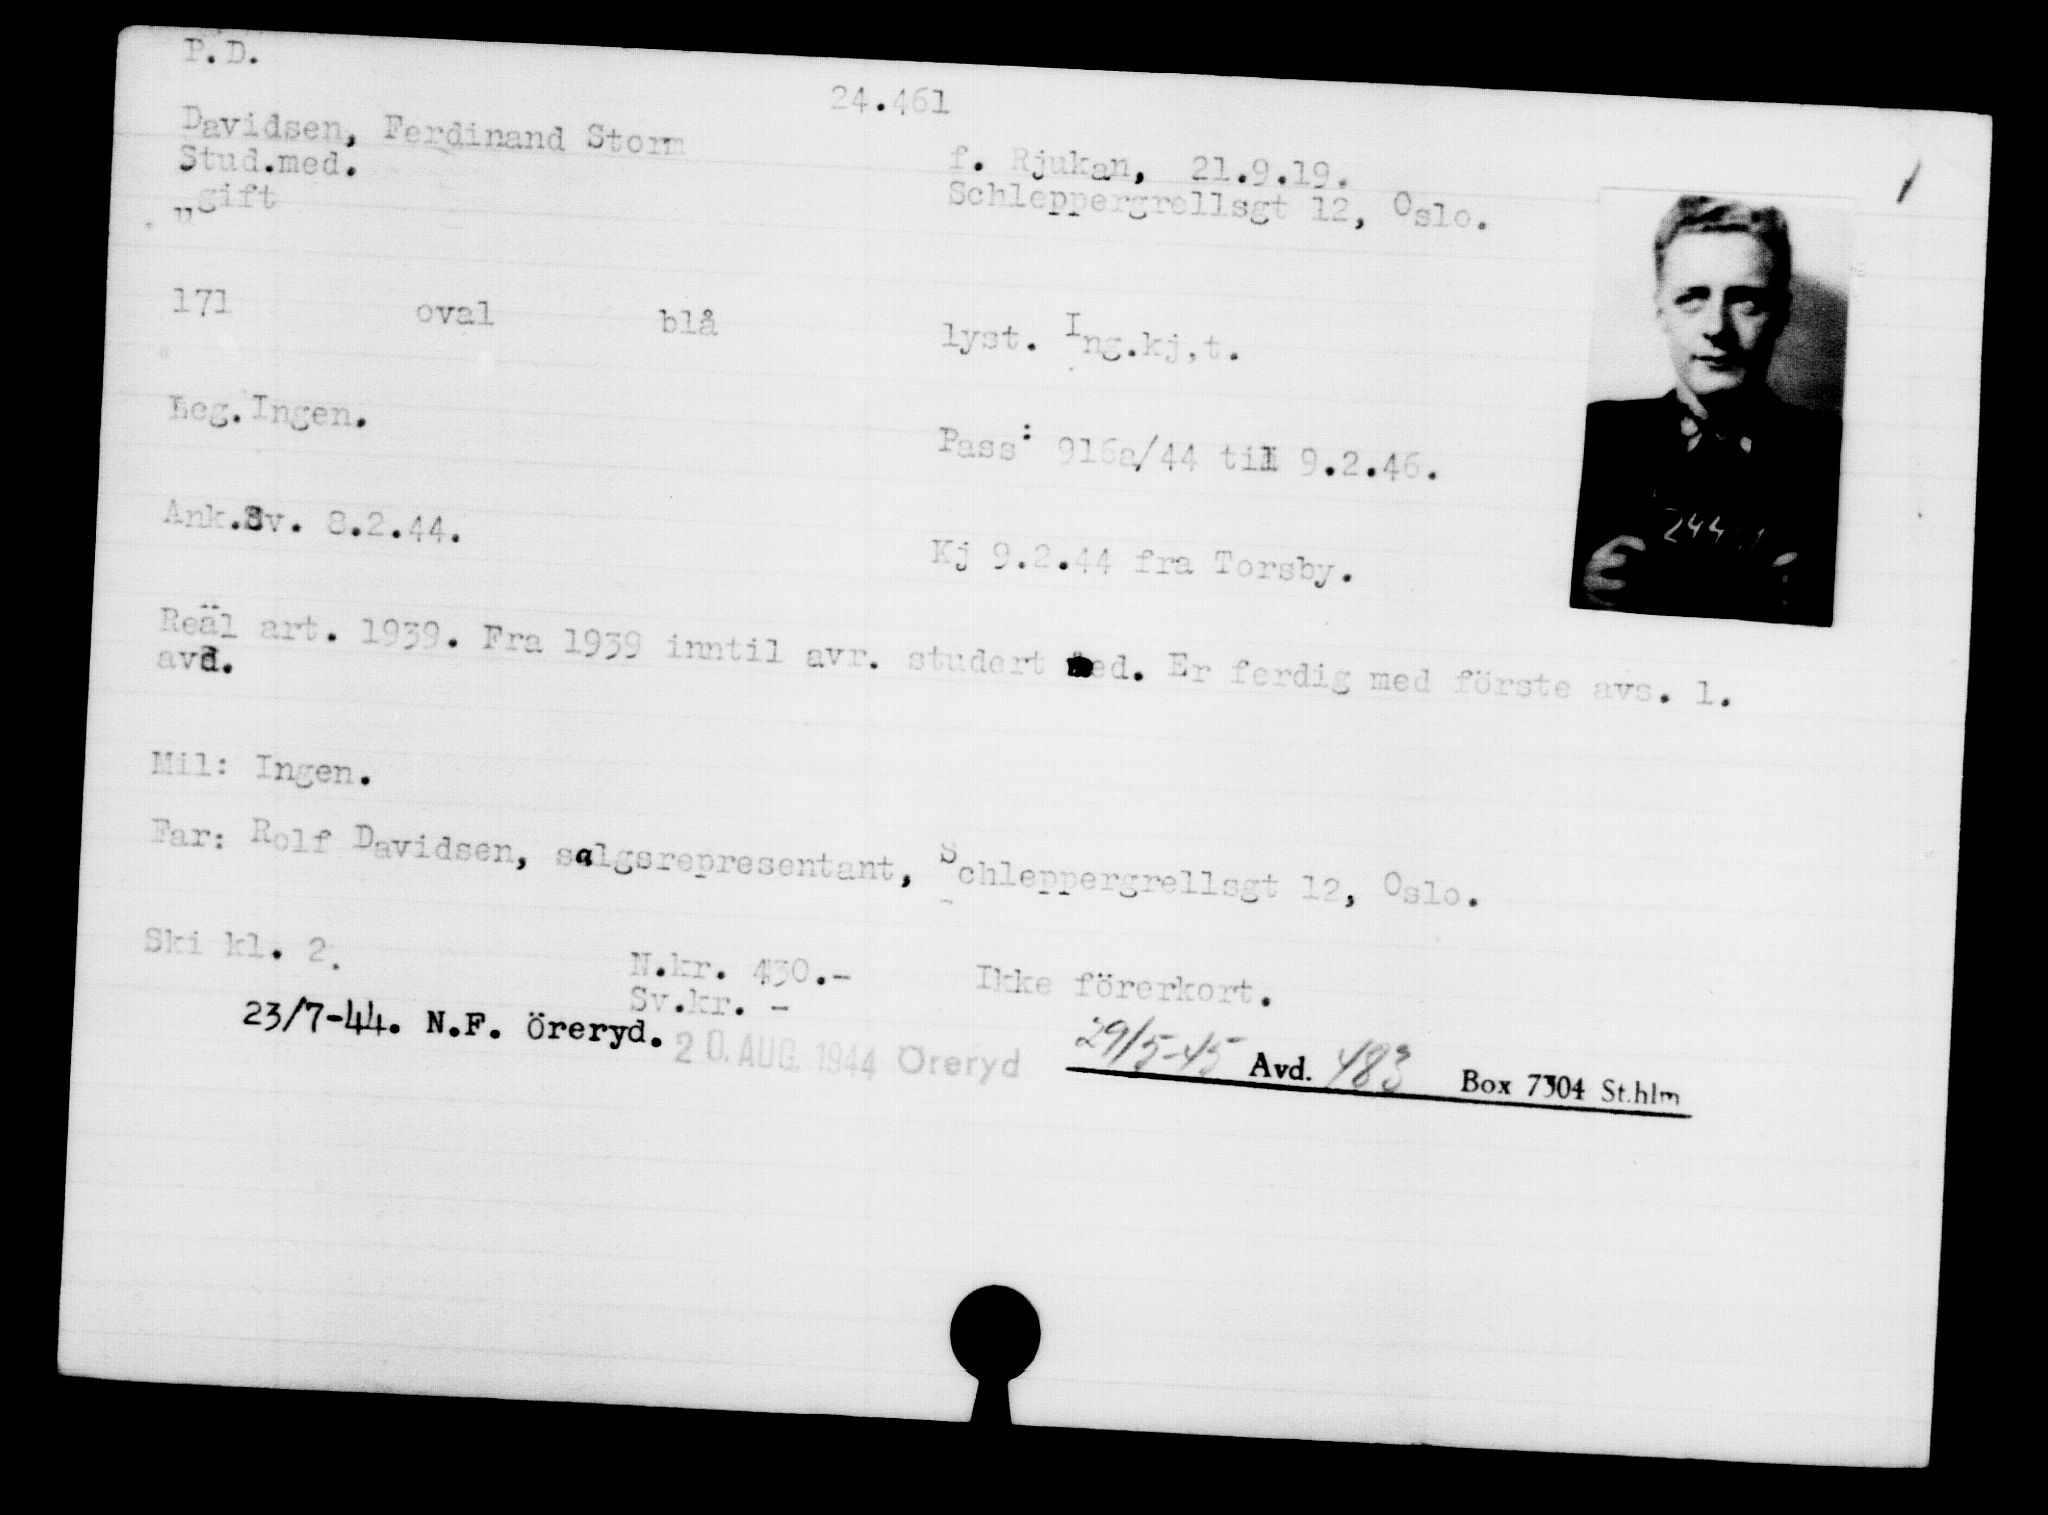 P.D.
24.461
Davidsen, Ferdinand Storm
f. Rjukan, 21.9.19.
Stud.med.
Schleppergrellsgt 12, Oslo.
"gift
171 oval blå lyst. Ing.kj,t.
Leg.Ingen.
Pass: 916a/44 till 9.2.46.
Ank.Sv. 8.2.44.
Kj 9.2.44 fra Torsby.
Reäl art. 1939. Fra 1939 inntil avr. studert med. Er ferdig med förste avs. 1.
avd.
Mil: Ingen.
Far: Rolf Davidsen, salgsrepresentant, Schleppergrellsgt 12, Oslo.
Ski kl. 2. N.kr. 430.- Ikke förerkort.
Sv.kr. -
23/7-44. N.F. Öreryd.
20. AUG. 1944 Öreryd
29/5-45 Avd. 483 Box 7304 St.hlm